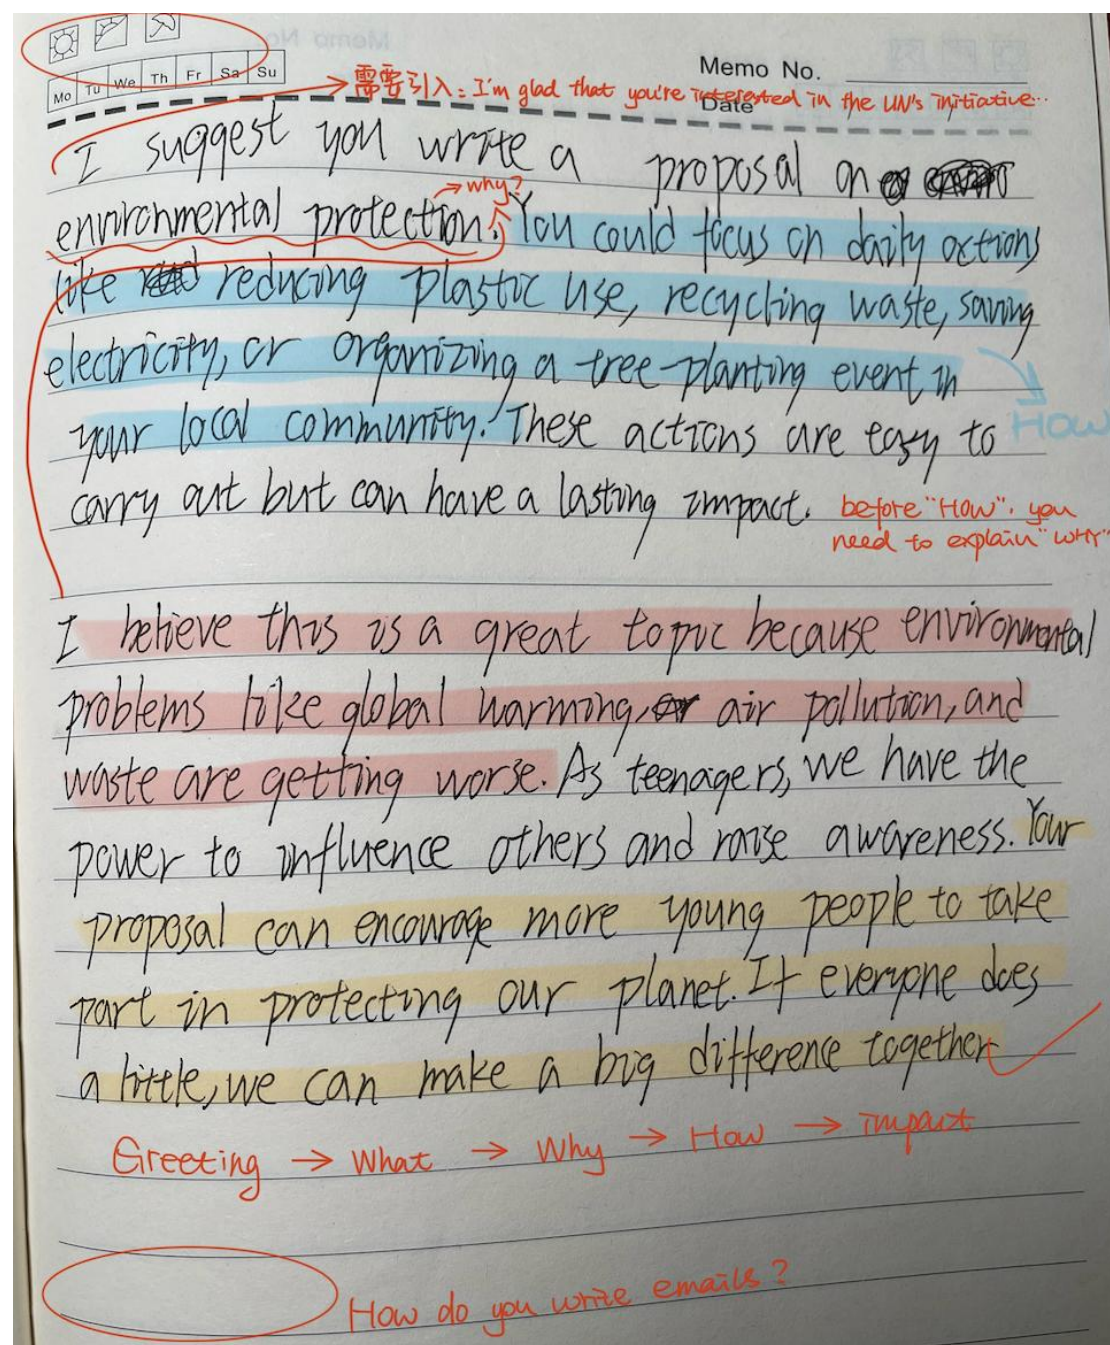 Memo No.
Mo Tu We Th Fr Sa Su
Memo No.
需要引入: I'm glad that you're interested in the UN's initiative...
Date
I suggest you write a proposal on
environmental protection. You could focus on daily actions
why?
like reducing plastic use, recycling waste, saving
electricity, or organizing a tree-planting event in
HOW
your local community. These actions are easy to
carry out but can have a lasting impact.
before "HOW", you
need to explain "WHY"
I believe this is a great topic because environmental
problems like global warming, air pollution, and
waste are getting worse. As teenagers, we have the
power to influence others and raise awareness. Your
proposal can encourage more young people to take
part in protecting our planet. If everyone does
a little, we can make a big difference together
Greeting → What → Why → How → impact
How do you write emails?